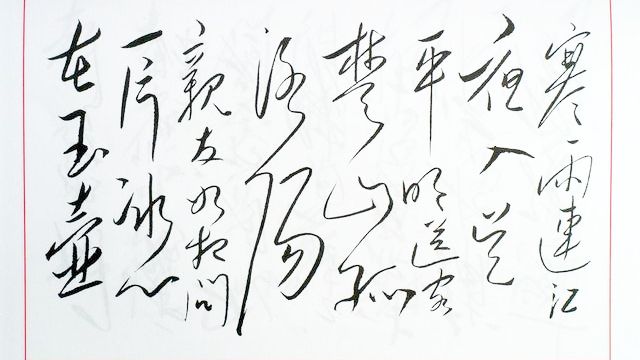 寒雨連江
夜入吴
平明送客
楚山孤
洛陽
親友如相问
一片冰心
在玉壺